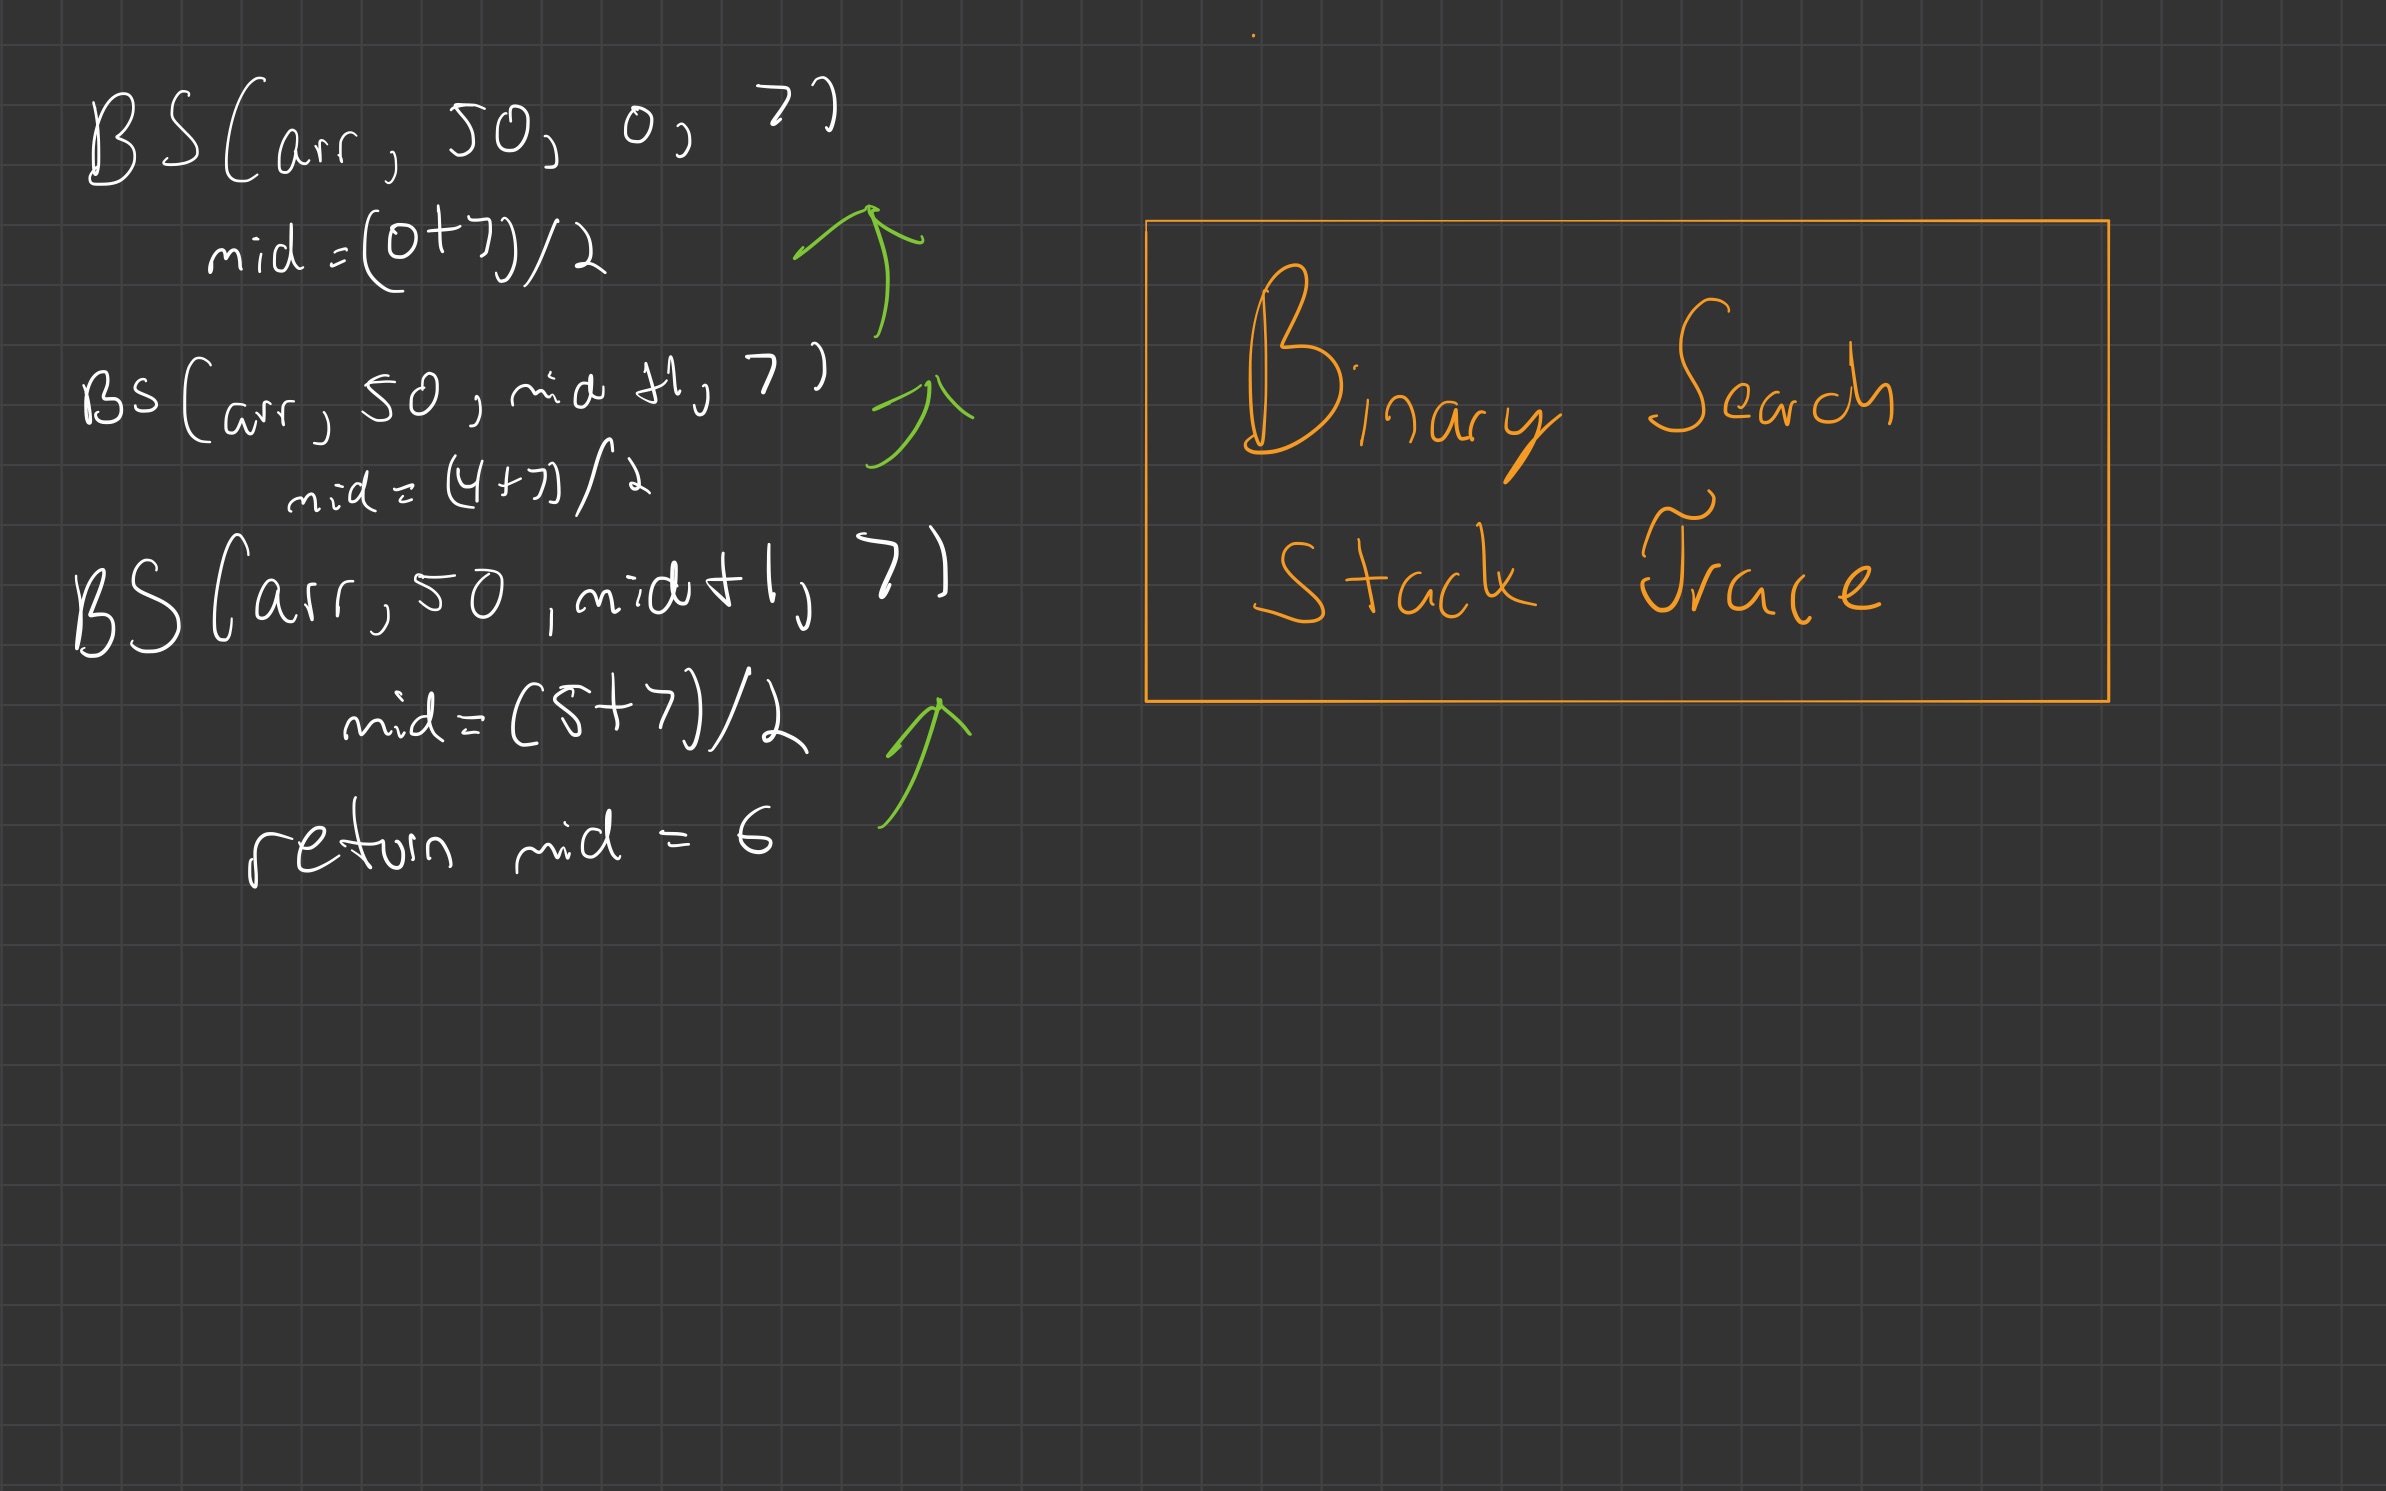 BS(arr, 50, 0, 7)
mid = (0+7)/2
BS(arr, 50, mid+1, 7)
mid = (4+7)/2
BS(arr, 50, mid+1, 7)
mid = (5+7)/2
return mid = 6
Binary Search
Stack Trace